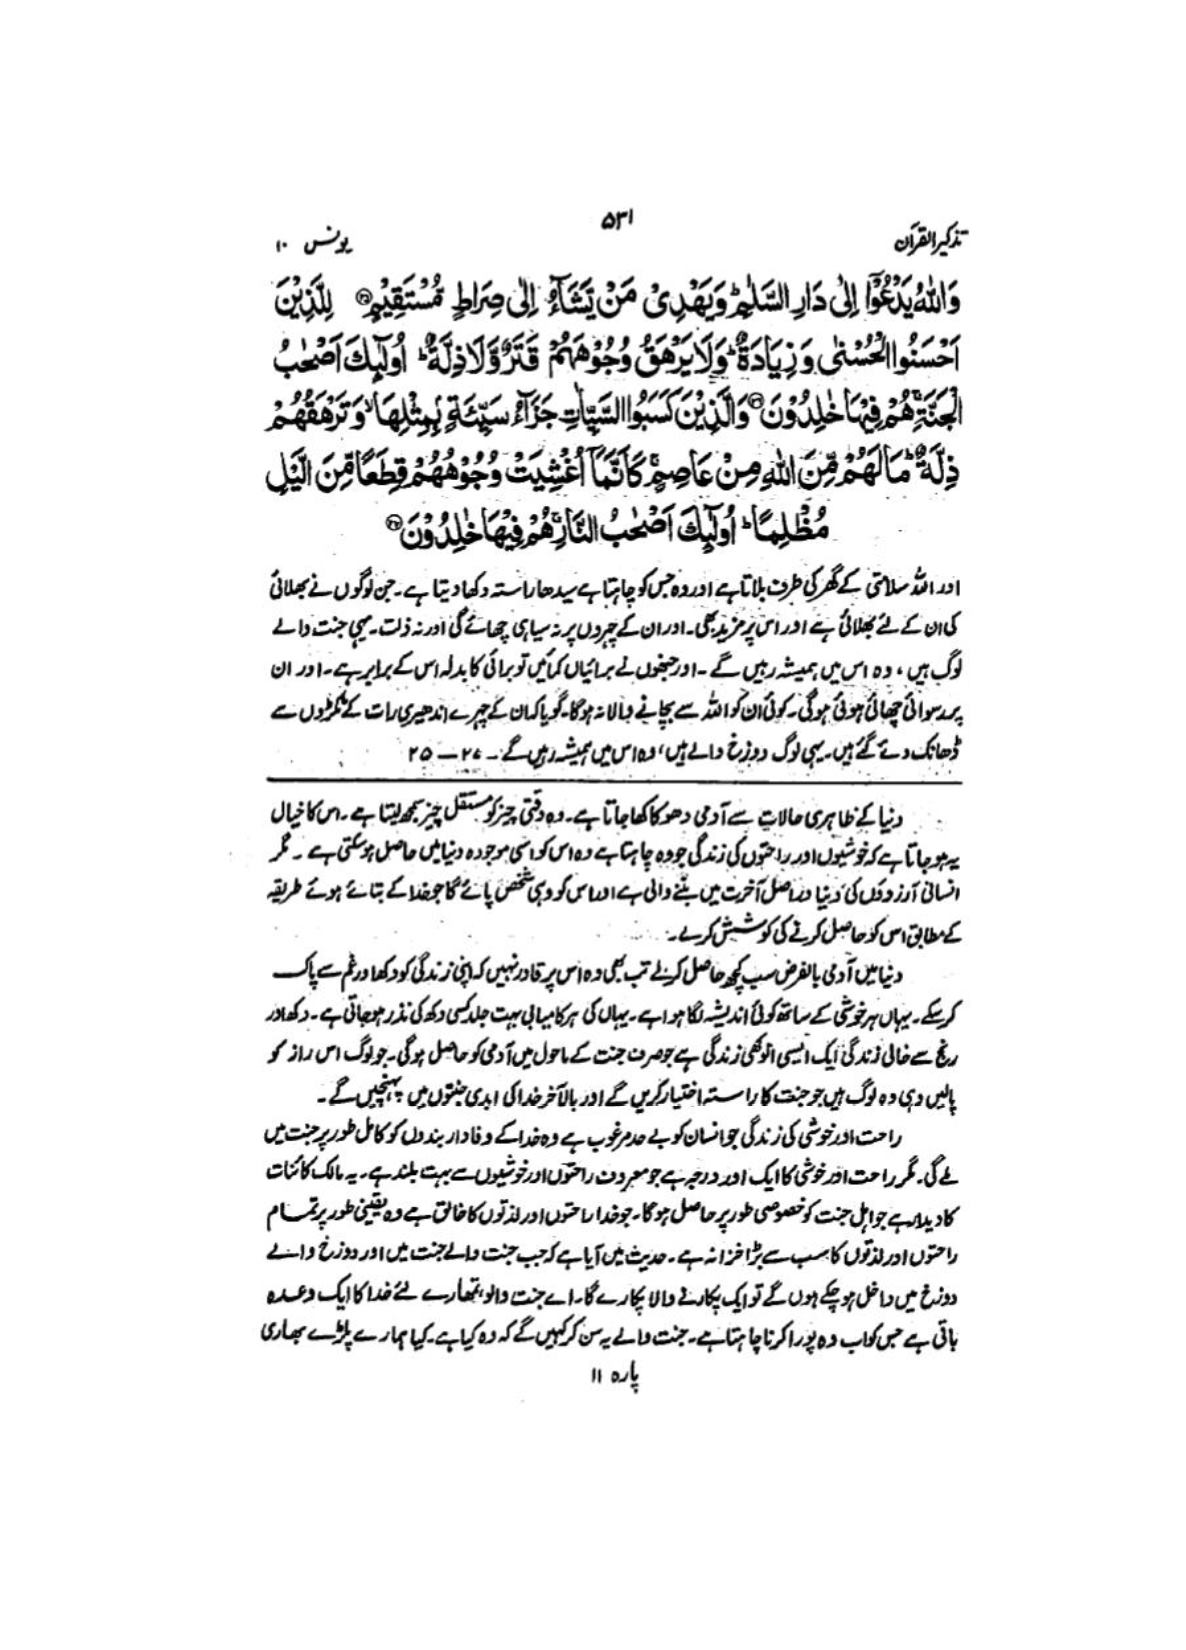 ۵۳۱
تذکیر القرآن
یونس ۱۰
وَاللّٰهُ يَدْعُوْٓا اِلٰى دَارِ السَّلٰمِ ؕ وَيَهْدِىْ مَنْ يَّشَآءُ اِلٰى صِرَاطٍ مُّسْتَقِيْمٍ ۝۲۵ لِلَّذِيْنَ
اَحْسَنُوا الْحُسْنٰى وَزِيَادَةٌ ؕ وَلَا يَرْهَقُ وُجُوْهَهُمْ قَتَرٌ وَّلَا ذِلَّةٌ ؕ اُولٰٓئِكَ اَصْحٰبُ
الْجَنَّةِ ۚ هُمْ فِيْهَا خٰلِدُوْنَ ۝۲۶ وَالَّذِيْنَ كَسَبُوا السَّيِّاٰتِ جَزَآءُ سَيِّئَةٍۭ بِمِثْلِهَا ۙ وَتَرْهَقُهُمْ
ذِلَّةٌ ؕ مَا لَهُمْ مِّنَ اللّٰهِ مِنْ عَاصِمٍ ۚ كَاَنَّمَآ اُغْشِيَتْ وُجُوْهُهُمْ قِطَعًا مِّنَ الَّيْلِ
مُظْلِمًا ؕ اُولٰٓئِكَ اَصْحٰبُ النَّارِ ۚ هُمْ فِيْهَا خٰلِدُوْنَ ۝۲۷
اور اللہ سلامتی کے گھر کی طرف بلاتا ہے اور وہ جس کو چاہتا ہے سیدھا راستہ دکھا دیتا ہے۔ جن لوگوں نے بھلائی
کی ان کے لئے بھلائی ہے اور اس پر مزید بھی۔ اور ان کے چہروں پر نہ سیاہی چھائے گی اور نہ ذلت۔ یہی جنت والے
لوگ ہیں، وہ اس میں ہمیشہ رہیں گے۔ اور جنھوں نے برائیاں کمائیں تو برائی کا بدلہ اس کے برابر ہے۔ اور ان
پر رسوائی چھائی ہوئی ہوگی۔ کوئی ان کو اللہ سے بچانے والا نہ ہوگا۔ گویا کہ ان کے چہرے اندھیری رات کے ٹکڑوں سے
ڈھانک دئے گئے ہیں۔ یہی لوگ دوزخ والے ہیں، وہ اس میں ہمیشہ رہیں گے۔ ۲۷ — ۲۵
دنیا کے ظاہری حالات سے آدمی دھوکا کھا جاتا ہے۔ وہ وقتی چیز کو مستقل چیز سمجھ لیتا ہے۔ اس کا خیال
یہ ہو جاتا ہے کہ خوشیوں اور راحتوں کی زندگی جو وہ چاہتا ہے وہ اس کو اسی موجودہ دنیا میں حاصل ہو سکتی ہے۔ مگر
انسانی آرزوؤں کی دنیا دراصل آخرت میں بننے والی ہے اور اس کو وہی شخص پائے گا جو خدا کے بتائے ہوئے طریقہ
کے مطابق اس کو حاصل کرنے کی کوشش کرے۔
دنیا میں آدمی بالفرض سب کچھ حاصل کر لے تب بھی وہ اس پر قادر نہیں کہ اپنی زندگی کو دکھ اور غم سے پاک
کر سکے۔ یہاں ہر خوشی کے ساتھ کوئی اندیشہ لگا ہوا ہے۔ یہاں کی ہر کامیابی بہت جلد کسی دکھ کی نذر ہو جاتی ہے۔ دکھ اور
رنج سے خالی زندگی ایک ایسی انوکھی زندگی ہے جو صرف جنت کے ماحول میں آدمی کو حاصل ہوگی۔ جو لوگ اس راز کو
پالیں وہی وہ لوگ ہیں جو جنت کا راستہ اختیار کریں گے اور بالآخر خدا کی ابدی جنتوں میں پہنچیں گے۔
راحت اور خوشی کی زندگی جو انسان کو بے حد مرغوب ہے وہ خدا کے وفادار بندوں کو کامل طور پر جنت میں
ملے گی۔ مگر راحت اور خوشی کا ایک اور درجہ ہے جو معروف راحتوں اور خوشیوں سے بہت بلند ہے۔ یہ مالک کائنات
کا دیدار ہے جو اہل جنت کو خصوصی طور پر حاصل ہوگا۔ جو خدا راحتوں اور لذتوں کا خالق ہے وہ یقینی طور پر تمام
راحتوں اور لذتوں کا سب سے بڑا خزانہ ہے۔ حدیث میں آیا ہے کہ جب جنت والے جنت میں اور دوزخ والے
دوزخ میں داخل ہو چکے ہوں گے تو ایک پکارنے والا پکارے گا۔ اے جنت والو، تمھارے لئے خدا کا ایک وعدہ
باقی ہے جس کو اب وہ پورا کرنا چاہتا ہے۔ جنت والے یہ سن کر کہیں گے کہ وہ کیا ہے۔ کیا ہمارے پلڑے بھاری
پارہ ۱۱